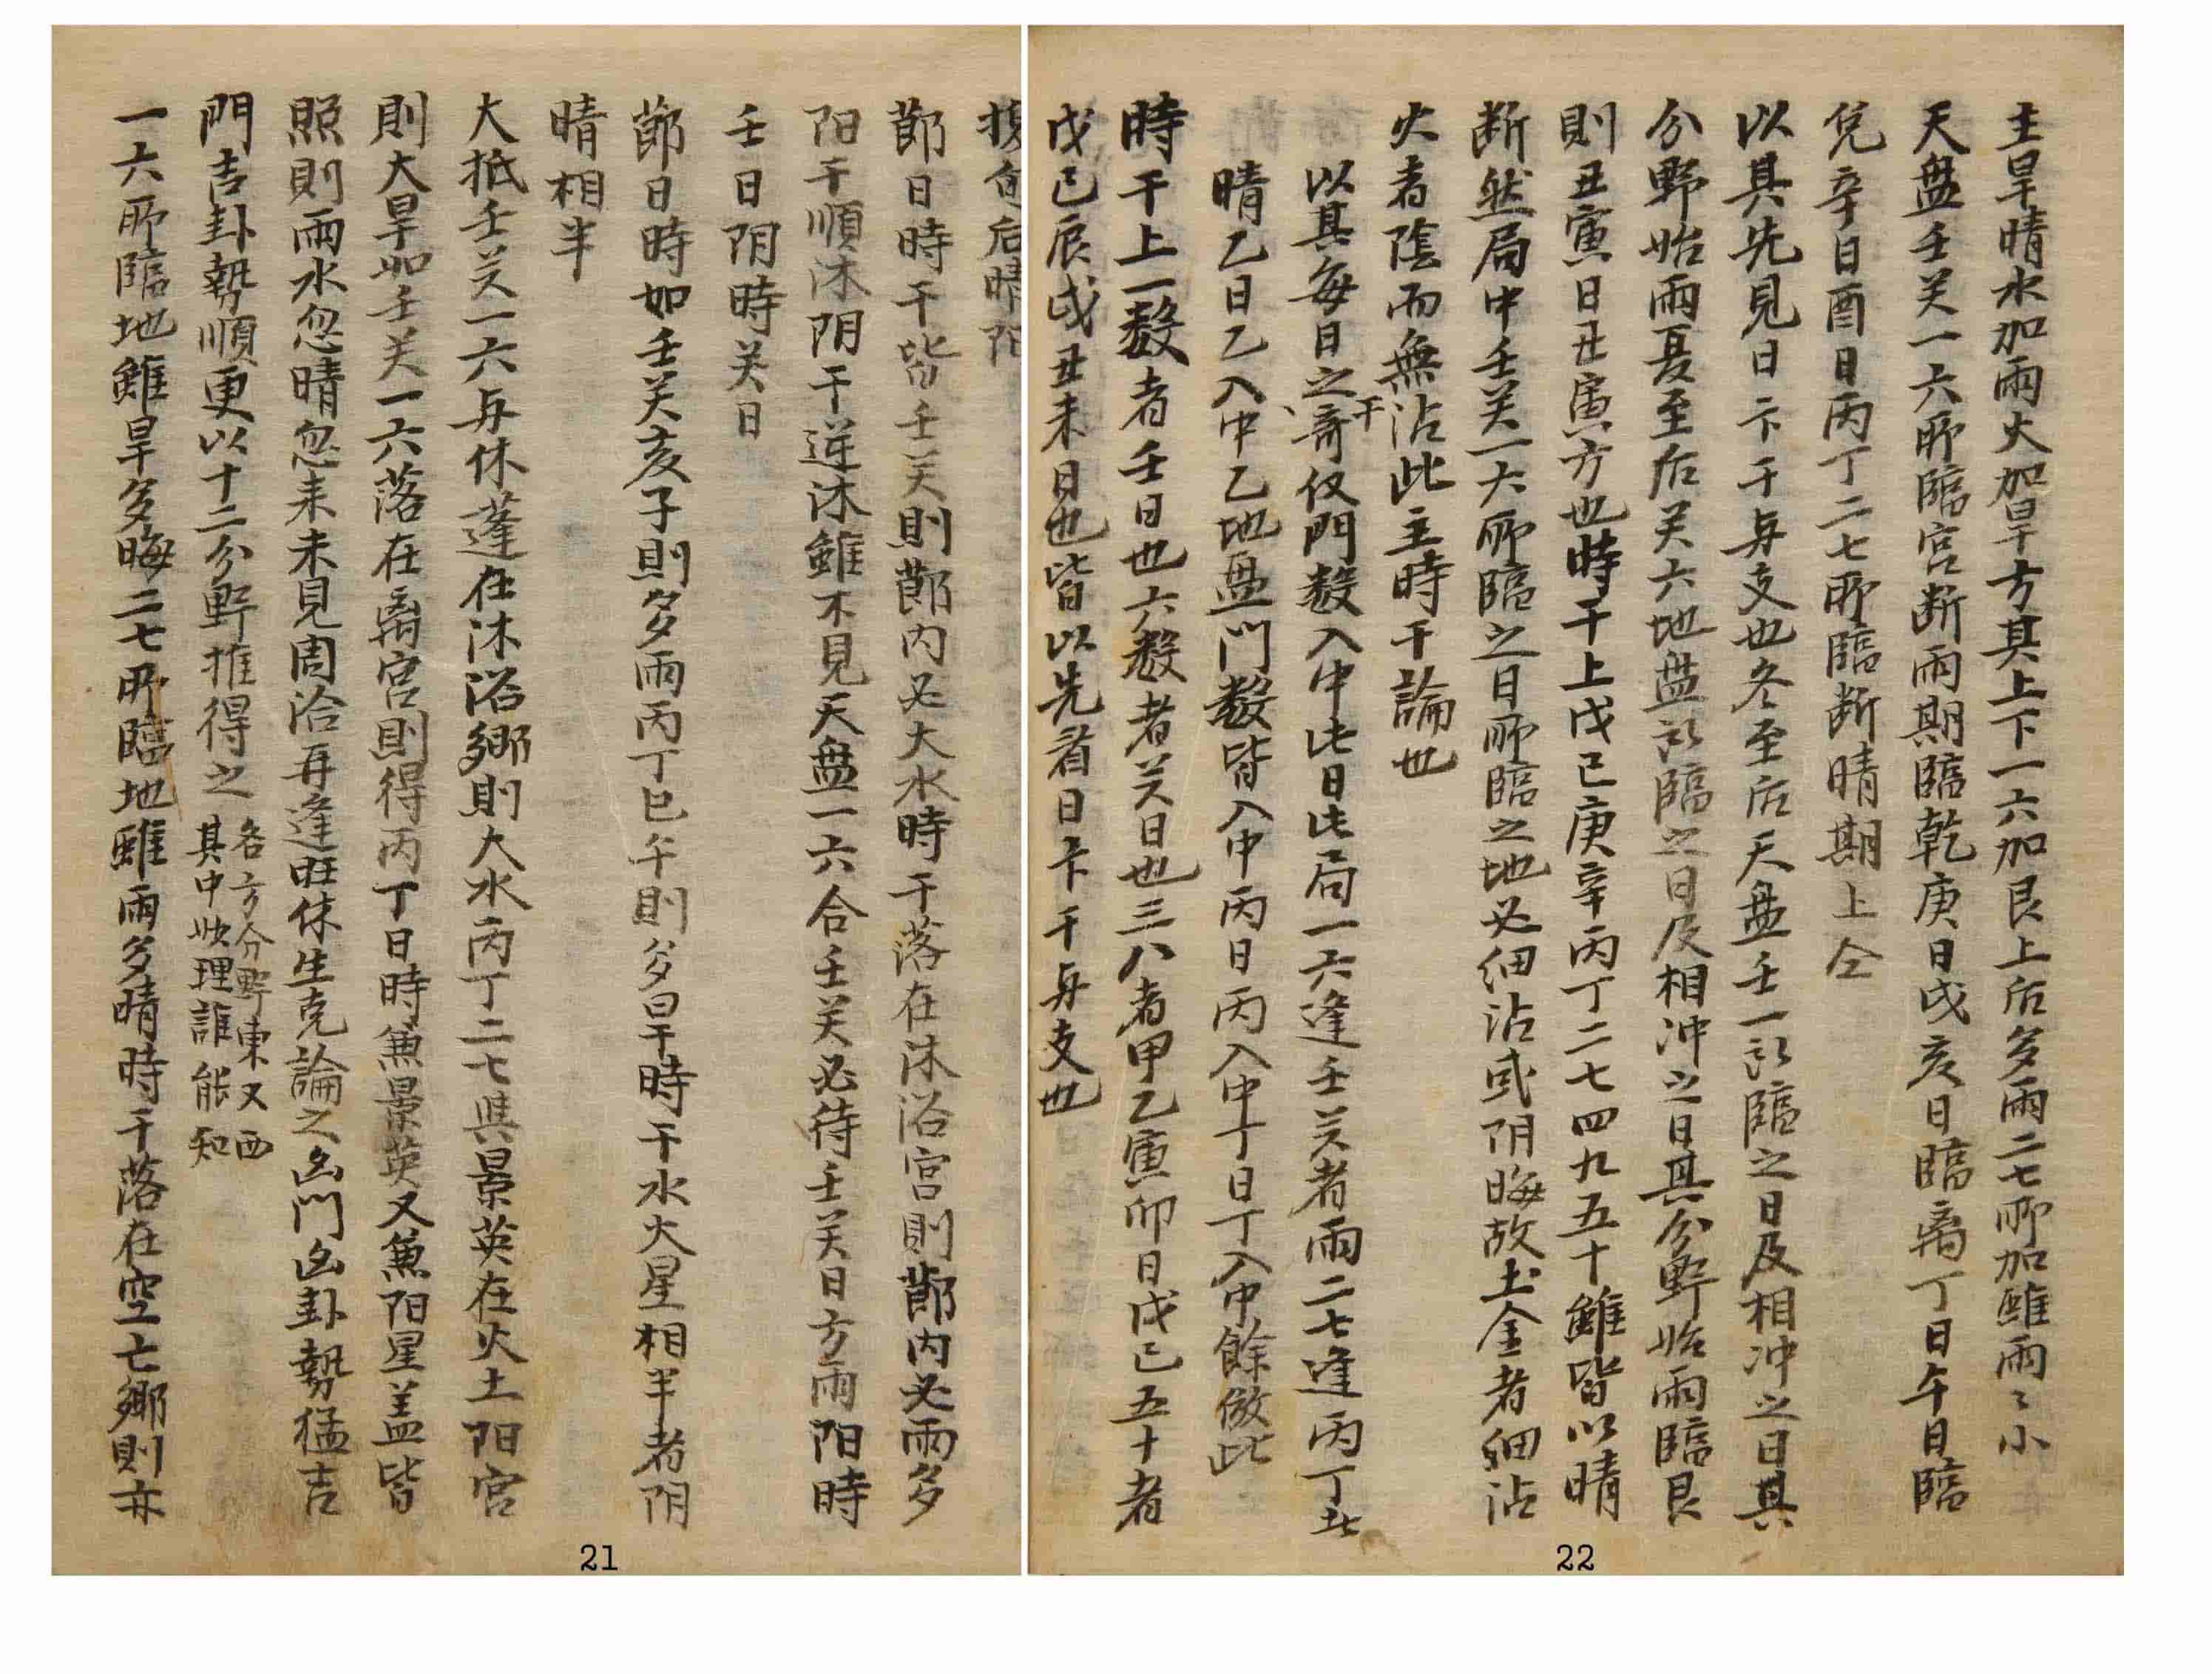 主旱晴水加雨火加旱方其上下一六加艮上后多雨二七所加雖雨〻小
天盘壬癸一六所臨宮断雨期臨乾庚日戌亥日臨离丁日午日臨
兌辛日酉日丙丁二七所臨断晴期上仝
以其先見日下干与支也冬至后天盘壬一所臨之日及相冲之日其
分野始雨夏至后癸六地盘所臨之日及相冲之日其分野始雨臨艮
則丑寅日丑寅方也時干上戊己庚辛丙丁二七四九五十雖皆以晴
断然局中壬癸一六所臨之日所臨之地必細沾或阴晦故土金者細沾
火者陰而無沾此主時干論也
以其每日之干奇仪門数入中此日此局一六逢壬癸者雨二七逢丙丁者
晴乙日乙入中乙地盘門数皆入中丙日丙入中丁日丁入中餘倣此
時干上一数者壬日也六数者癸日也三八者甲乙寅卯日戊己五十者
戊己辰戌丑未日也皆以先看日下干与支也
后晴阳
節日時干皆壬癸則節内必大水時干落在沐浴宮則節内必雨多
阳干順沐阴干逆沐雖不見天盘一六合壬癸必待壬癸日方雨阳時
壬日阴時癸日
節日時如壬癸亥子則多雨丙丁巳午則多旱時干水火星相半者阴
晴相半
大抵壬癸一六与休蓬在沐浴鄉則大水丙丁二七與景英在火土阳宮
則大旱如壬癸一六落在离宮則得丙丁日時兼景英又兼阳星盖皆
照則雨水忽晴忽来未見周洽再逢旺休生克論之凶門凶卦勢猛吉
門吉卦勢順更以十二分野推得之
各方分野東又西
其中妙理誰能知
一六所臨地雖旱多晦二七所臨地雖雨多晴時干落在空亡鄉則亦